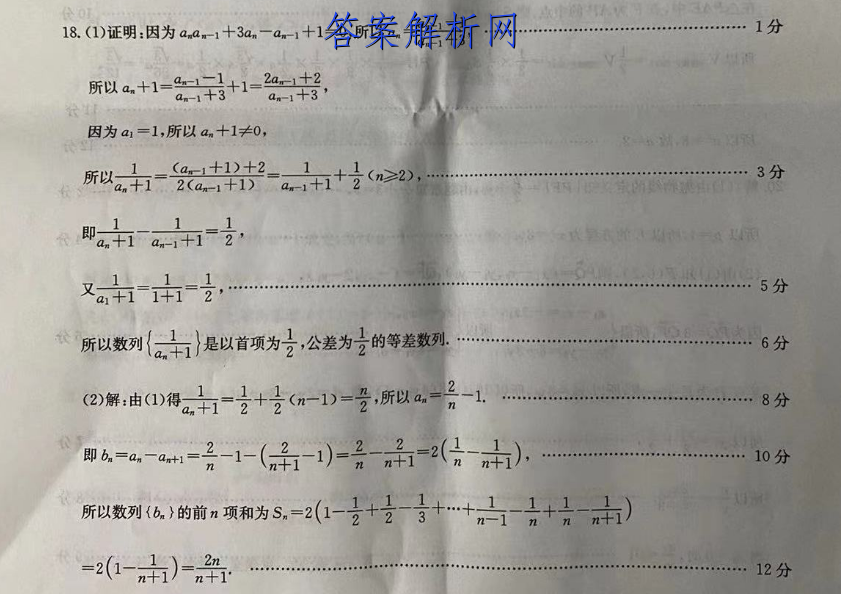 18.(1)证明:因为 aₙaₙ₋₁+3aₙ-aₙ₋₁+1 所 …… 1分
答案解析网
所以 aₙ+1=(aₙ₋₁-1)/(aₙ₋₁+3)+1=(2aₙ₋₁+2)/(aₙ₋₁+3),
因为 a₁=1,所以 aₙ+1≠0,
所以 1/(aₙ+1)=((aₙ₋₁+1)+2)/(2(aₙ₋₁+1))=1/(aₙ₋₁+1)+1/2(n≥2), …… 3分
即 1/(aₙ+1)-1/(aₙ₋₁+1)=1/2,
又 1/(a₁+1)=1/(1+1)=1/2, …… 5分
所以数列{1/(aₙ+1)}是以首项为1/2,公差为1/2的等差数列. …… 6分
(2)解:由(1)得 1/(aₙ+1)=1/2+1/2(n-1)=n/2,所以 aₙ=2/n-1. …… 8分
即 bₙ=aₙ-aₙ₊₁=2/n-1-(2/(n+1)-1)=2/n-2/(n+1)=2(1/n-1/(n+1)), …… 10分
所以数列{bₙ}的前 n 项和为 Sₙ=2(1-1/2+1/2-1/3+…+1/(n-1)-1/n+1/n-1/(n+1))
=2(1-1/(n+1))=2n/(n+1). …… 12分